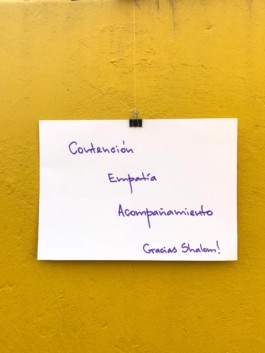 Contención
Empatía
Acompañamiento
Gracias Shalom!